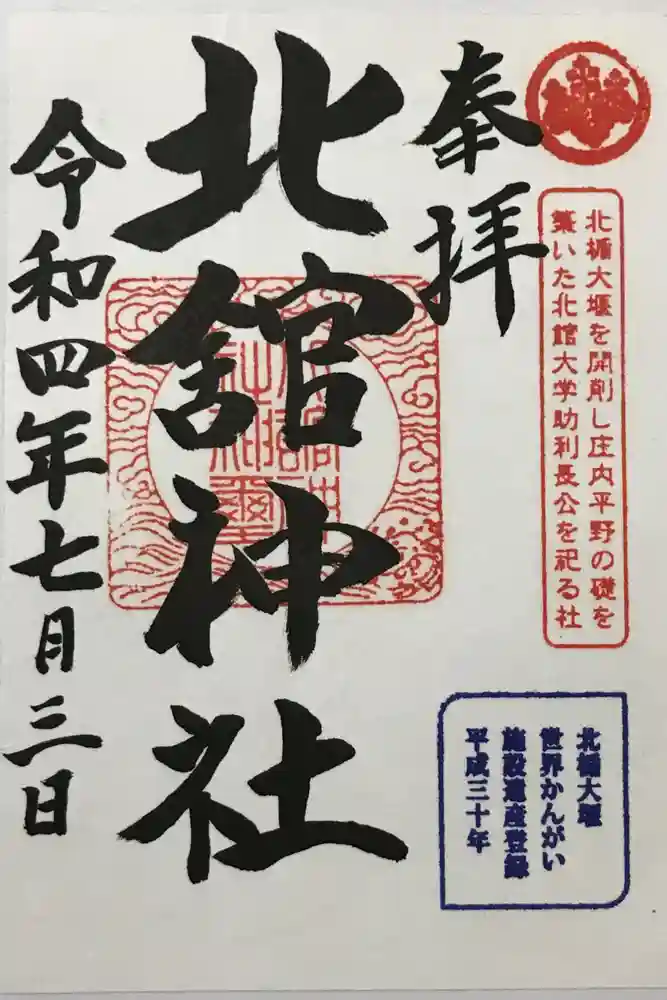 奉拝
北楯大堰を開削し庄内平野の礎を
築いた北館大学助利長公を祀る社
北楯大堰
世界かんがい
施設遺産登録
平成三十年
北舘神社
令和四年七月三日